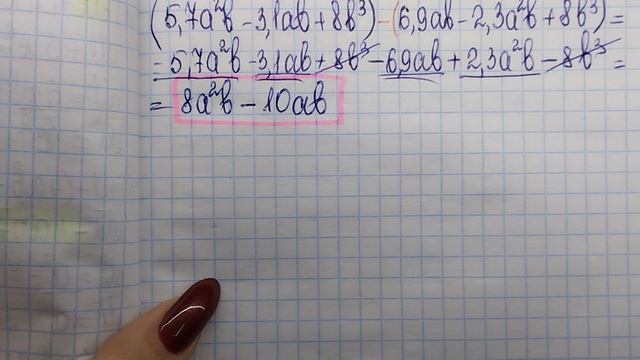 (5,7a²b - 3,1ab + 8b³) - (6,9ab - 2,3a²b + 8b³) =
= 5,7a²b - 3,1ab + 8b³ - 6,9ab + 2,3a²b - 8b³ =
= 8a²b - 10ab